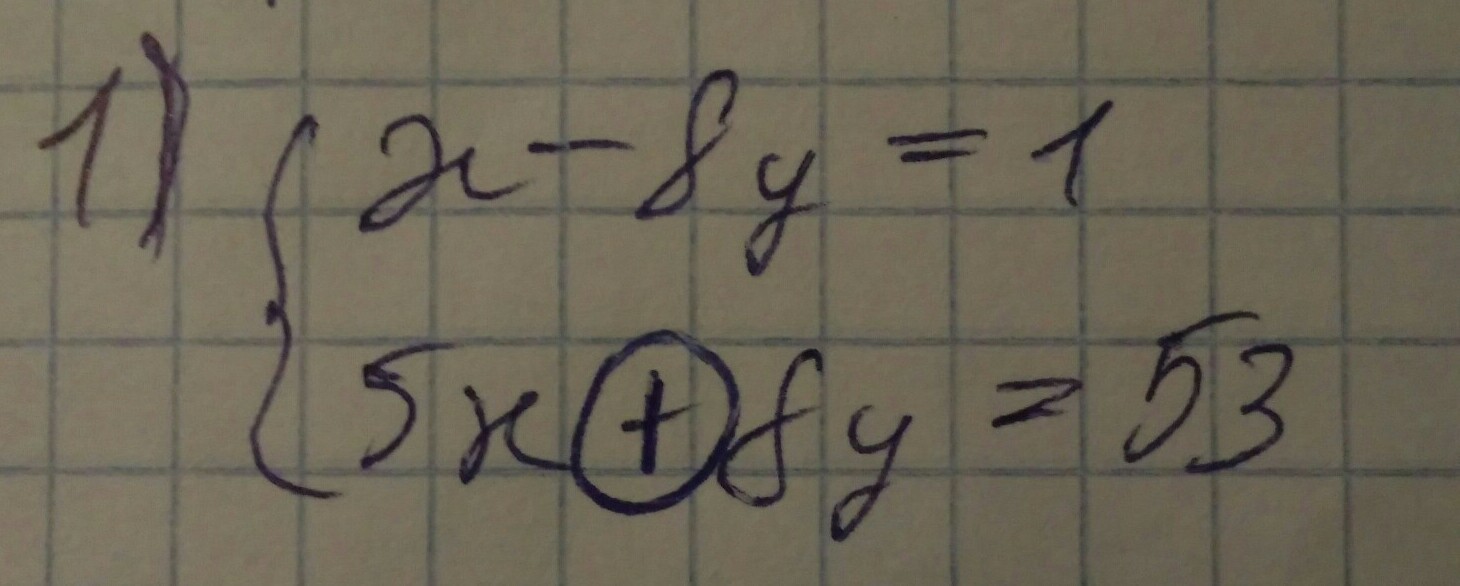 1) x - 8y = 1
5x + 8y = 53